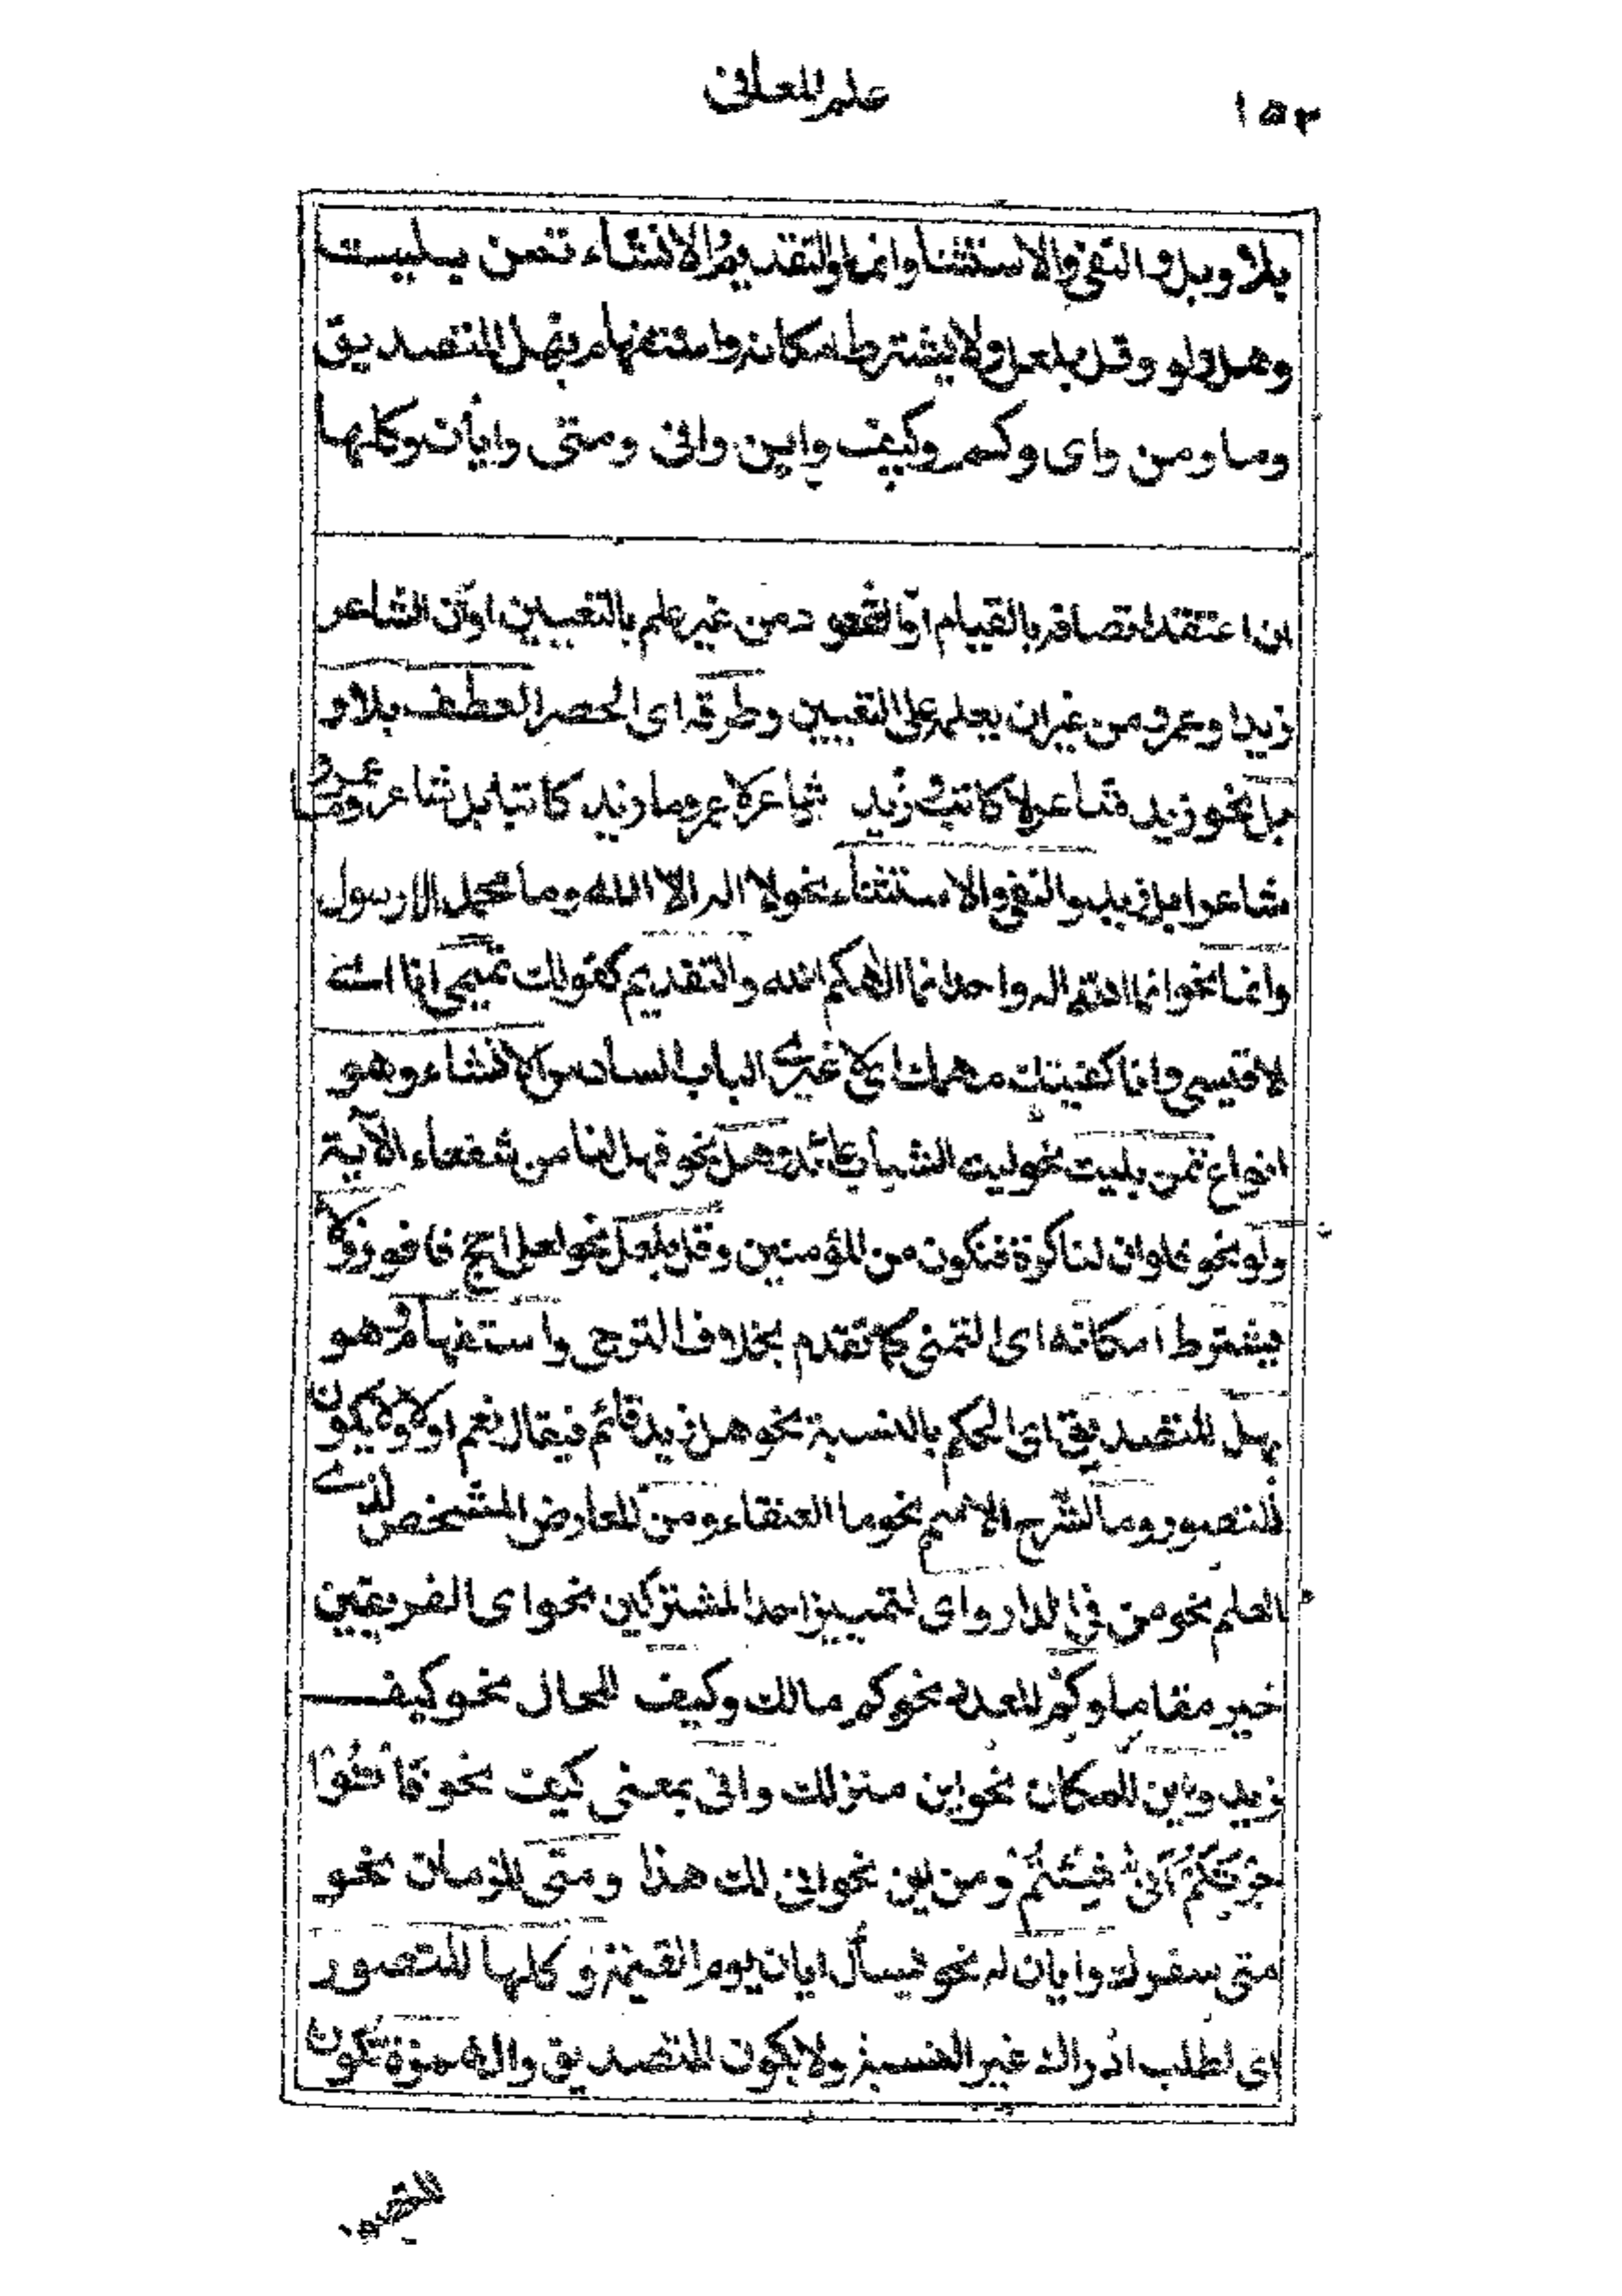 علم المعانى
١٥٢
بلا وبل والنفى والاستثنا وانما والتقديم الانشاء تمن بليت
وهل ولو وقل بلعل ولا يشترط امكانه واستفهام بهل للتصديق
وما ومن واى وكم وكيف واين وانى ومتى وايان وكلها
ان اعتقد اتصافه بالقيام او القعود من غير علم بالتعيين او ان الشاعر
زيد او عمرو من غير ان يعلمه على التعيين وطرقه اى الحصر العطف بلا و
بل نحو زيد شاعر لا كاتب زيد شاعر لا عمرو ما زيد كاتبا بل شاعر وما عمرو
شاعرا بل زيد والنفى والاستثناء نحو لا اله الا الله وما محمد الا رسول
وانما نحو انما الله اله واحد انما الهكم الله والتقديم كقولك تميمى انا اے
لا قيسى وانا كفيتك مهمك اى لا غيرى الباب السادس الانشاء وهو
انواع تمن بليت نحو ليت الشباب عائد وهل نحو فهل لنا من شفعاء الآية
ولو نحو فلو ان لنا كرة فنكون من المؤمنين وقل بلعل نحو لعلى احج فافوز ولا
يشترط امكانه اى التمنى كما تقدم بخلاف الترجى واستفهام وهو
بهل للتصديق اى الحكم بالنسبة نحو هل زيد قائم فيقال نعم او لا ولا يكون
للتصور وما لشرح الاسم نحو ما العنقاء ومن للعارض المشخص لذے
العلم نحو من فى الدار واى لتمييز احد المشتركين نحو اى الفريقين
خير مقاما وكم للعدد نحو كم مالك وكيف للحال نحو كيف
زيد واين للمكان نحو اين منزلك وانى بمعنى كيف نحو فَأْتُوْا
حَرْثَكُمْ اَنّٰى شِئْتُمْ ومن اين نحو انى لك هذا ومتى للزمان نحو
متى سفرك وايان له نحو يسأل ايان يوم القيمة وكلها للتصور
اى لطلب ادراك غير النسبة ولا يكون للتصديق والهمزة تكون